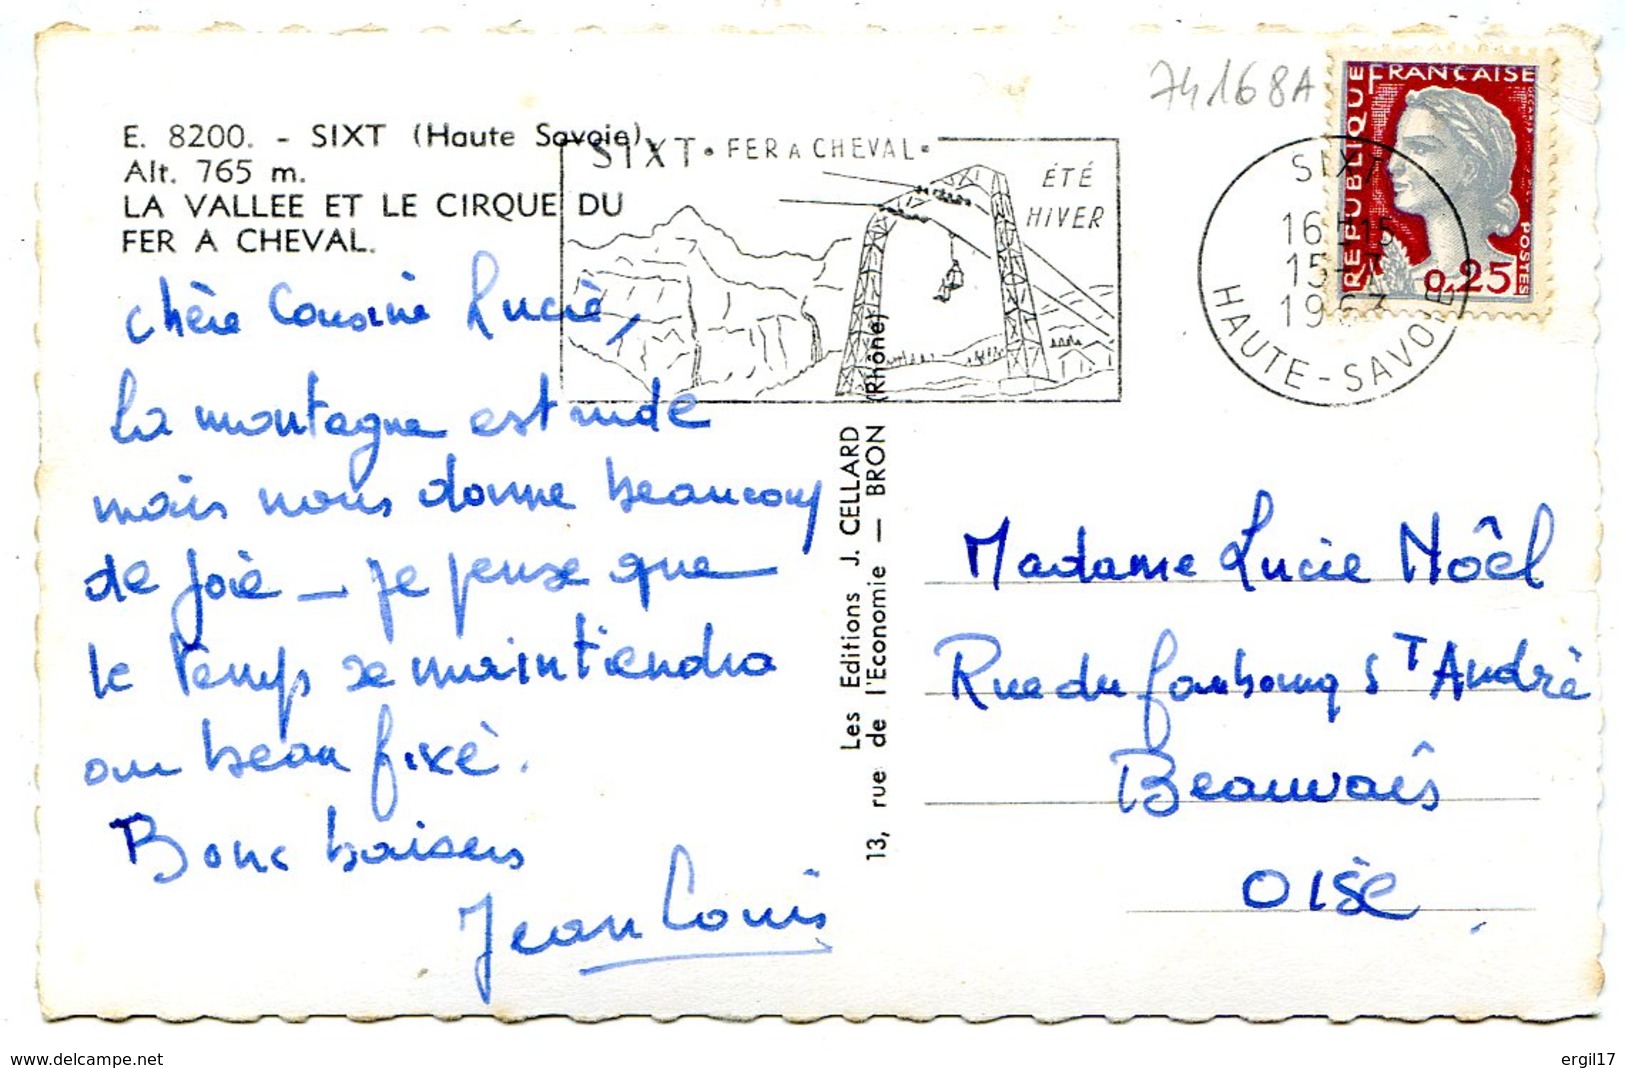 E. 8200. - SIXT (Haute Savoie).
Alt. 765 m.
LA VALLEE ET LE CIRQUE DU
FER A CHEVAL.
chère Cousine Lucie,
La montagne est rude
mais nous donne beaucoup
de joie — je pense que
le temps se maintiendra
au beau fixe.
Bons baisers
Jean Louis
SIXT • FER A CHEVAL •
ÉTÉ
HIVER
Les Editions J. CELLARD
13, rue de l'Economie — BRON (Rhône)
74168A
RÉPUBLIQUE FRANÇAISE
POSTES
0,25
SIXT
16H15
15-7
1963
HAUTE-SAVOIE
Madame Lucie Noêl
Rue du faubourg St André
Beauvais
OISE
www.delcampe.com
ergil17